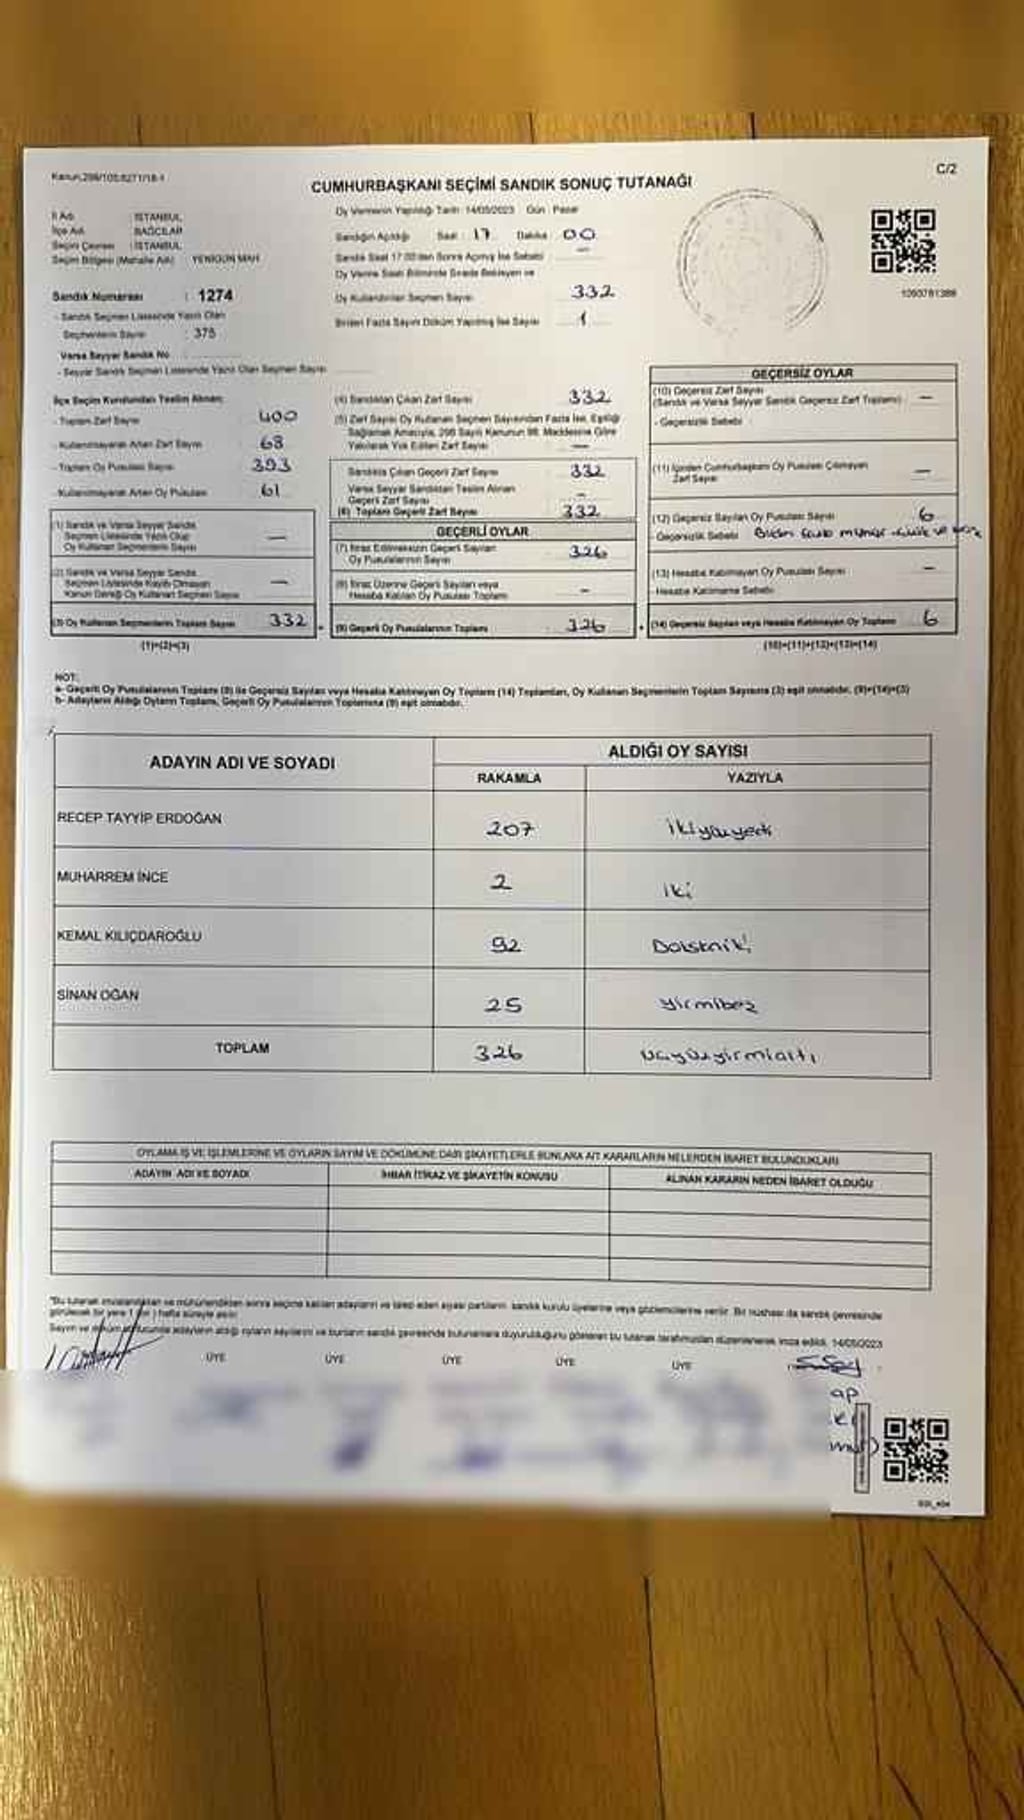 Kanun:298/105;6271/18-1
C/2
CUMHURBAŞKANI SEÇİMİ SANDIK SONUÇ TUTANAĞI
İl Adı : İSTANBUL
İlçe Adı : BAĞCILAR
Seçim Çevresi : İSTANBUL
Seçim Bölgesi (Mahalle Adı) YENİGÜN MAH
Sandık Numarası : 1274
- Sandık Seçmen Listesinde Yazılı Olan
Seçmenlerin Sayısı : 375
Varsa Seyyar Sandık No
- Seyyar Sandık Seçmen Listesinde Yazılı Olan Seçmen Sayısı
Oy Vermenin Yapıldığı Tarih: 14/05/2023 Gün : Pazar
Sandığın Açıldığı Saat : 17 Dakika 00
Sandık Saat 17:00'den Sonra Açılmış İse Sebebi —
Oy Verme Saati Bitiminde Sırada Bekleyen ve
Oy Kullandırılan Seçmen Sayısı 332
Birden Fazla Sayım Döküm Yapılmış İse Sayısı 1
1090781388
İlçe Seçim Kurulundan Teslim Alınan:
- Toplam Zarf Sayısı 400
- Kullanılmayarak Artan Zarf Sayısı 68
- Toplam Oy Pusulası Sayısı 393
- Kullanılmayarak Artan Oy Pusulası 61
(1) Sandık ve Varsa Seyyar Sandık
Seçmen Listesinde Yazılı Olup
Oy Kullanan Seçmenlerin Sayısı —
(2) Sandık ve Varsa Seyyar Sandık
Seçmen Listesinde Kaydı Olmayan
Kanun Gereği Oy Kullanan Seçmen Sayısı —
(3) Oy Kullanan Seçmenlerin Toplam Sayısı 332
(1)+(2)=(3)
(4) Sandıktan Çıkan Zarf Sayısı 332
(5) Zarf Sayısı Oy Kullanan Seçmen Sayısından Fazla İse, Eşitliği
Sağlamak Amacıyla, 298 Sayılı Kanunun 98. Maddesine Göre
Yakılarak Yok Edilen Zarf Sayısı —
Sandıkta Çıkan Geçerli Zarf Sayısı 332
Varsa Seyyar Sandıktan Teslim Alınan
Geçerli Zarf Sayısı –
(6) Toplam Geçerli Zarf Sayısı 332
GEÇERLİ OYLAR
(7) İtiraz Edilmeksizin Geçerli Sayılan
Oy Pusulalarının Sayısı 326
(8) İtiraz Üzerine Geçerli Sayılan veya
Hesaba Katılan Oy Pusulası Toplamı –
(9) Geçerli Oy Pusulalarının Toplamı 326
GEÇERSİZ OYLAR
(10) Geçersiz Zarf Sayısı
(Sandık ve Varsa Seyyar Sandık Geçersiz Zarf Toplamı) —
- Geçersizlik Sebebi
(11) İçinden Cumhurbaşkanı Oy Pusulası Çıkmayan
Zarf Sayısı —
(12) Geçersiz Sayılan Oy Pusulası Sayısı 6
Geçersizlik Sebebi Birden fazla mühür
(13) Hesaba Katılmayan Oy Pusulası Sayısı –
- Hesaba Katılmama Sebebi
(14) Geçersiz Sayılan veya Hesaba Katılmayan Oy Toplamı 6
(10)+(11)+(12)+(13)=(14)
NOT:
a- Geçerli Oy Pusulalarının Toplamı (9) ile Geçersiz Sayılan veya Hesaba Katılmayan Oy Toplamı (14) Toplamları, Oy Kullanan Seçmenlerin Toplam Sayısına (3) eşit olmalıdır. (9)+(14)=(3)
b- Adayların Aldığı Oyların Toplamı, Geçerli Oy Pusulalarının Toplamına (9) eşit olmalıdır.
ADAYIN ADI VE SOYADI
ALDIĞI OY SAYISI
RAKAMLA YAZIYLA
RECEP TAYYİP ERDOĞAN 207 ikiyüzyedi
MUHARREM İNCE 2 iki
KEMAL KILIÇDAROĞLU 92 Doksaniki
SİNAN OĞAN 25 yirmibeş
TOPLAM 326 üçyüzyirmialtı
OYLAMA İŞ VE İŞLEMLERİNE VE OYLARIN SAYIM VE DÖKÜMÜNE DAİR ŞİKAYETLERLE BUNLARA AİT KARARLARIN NELERDEN İBARET BULUNDUKLARI
ADAYIN ADI VE SOYADI İHBAR İTİRAZ VE ŞİKAYETİN KONUSU ALINAN KARARIN NEDEN İBARET OLDUĞU
"Bu tutanak imzalandıktan ve mühürlendikten sonra seçime katılan adayların ve talep eden siyasi partilerin sandık kurulu üyelerine veya gözlemcilerine verilir. Bir nüshası da sandık çevresinde
görülecek bir yere 1 (bir) hafta süreyle asılır.
Sayım ve döküm sonucunda adayların aldığı oyların sayılarını ve bunların sandık çevresinde bulunanlara duyurulduğunu gösteren bu tutanak tarafımızdan düzenlenerek imza edildi. 14/05/2023
ÜYE ÜYE ÜYE ÜYE ÜYE